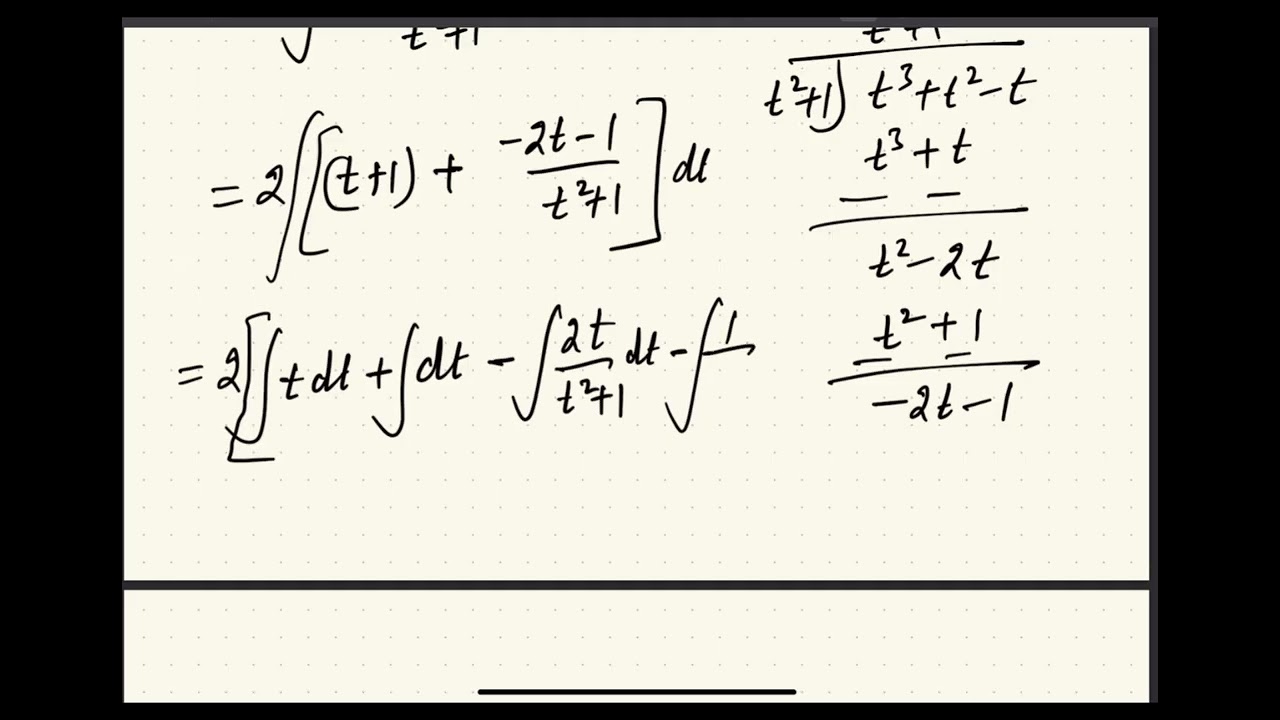 ∫ t²+1
= 2∫[(t+1) + (-2t-1)/(t²+1)] dt
= 2[∫t dt + ∫dt - ∫ 2t/(t²+1) dt - ∫ 1/
t+1
t²+1) t³+t²-t
t³+t
— —
t²-2t
t²+1
— —
-2t-1